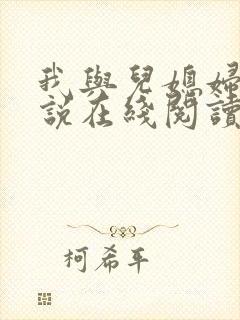 我與兒媳婦
說在綫閱讀
柯希平